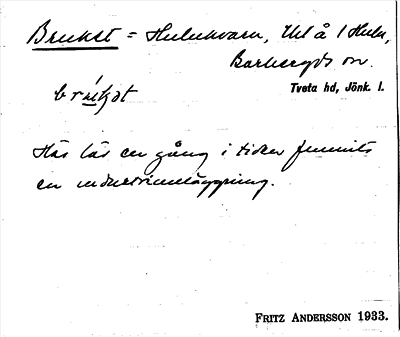 Brukst = Hulukvarn, Ul å 1 Hulu,
Barkeryds sn.
Tveta hd, Jönk. l.
brúkst
Här lär en gång i tiden funnits
en industrianläggning.
FRITZ ANDERSSON 1933.